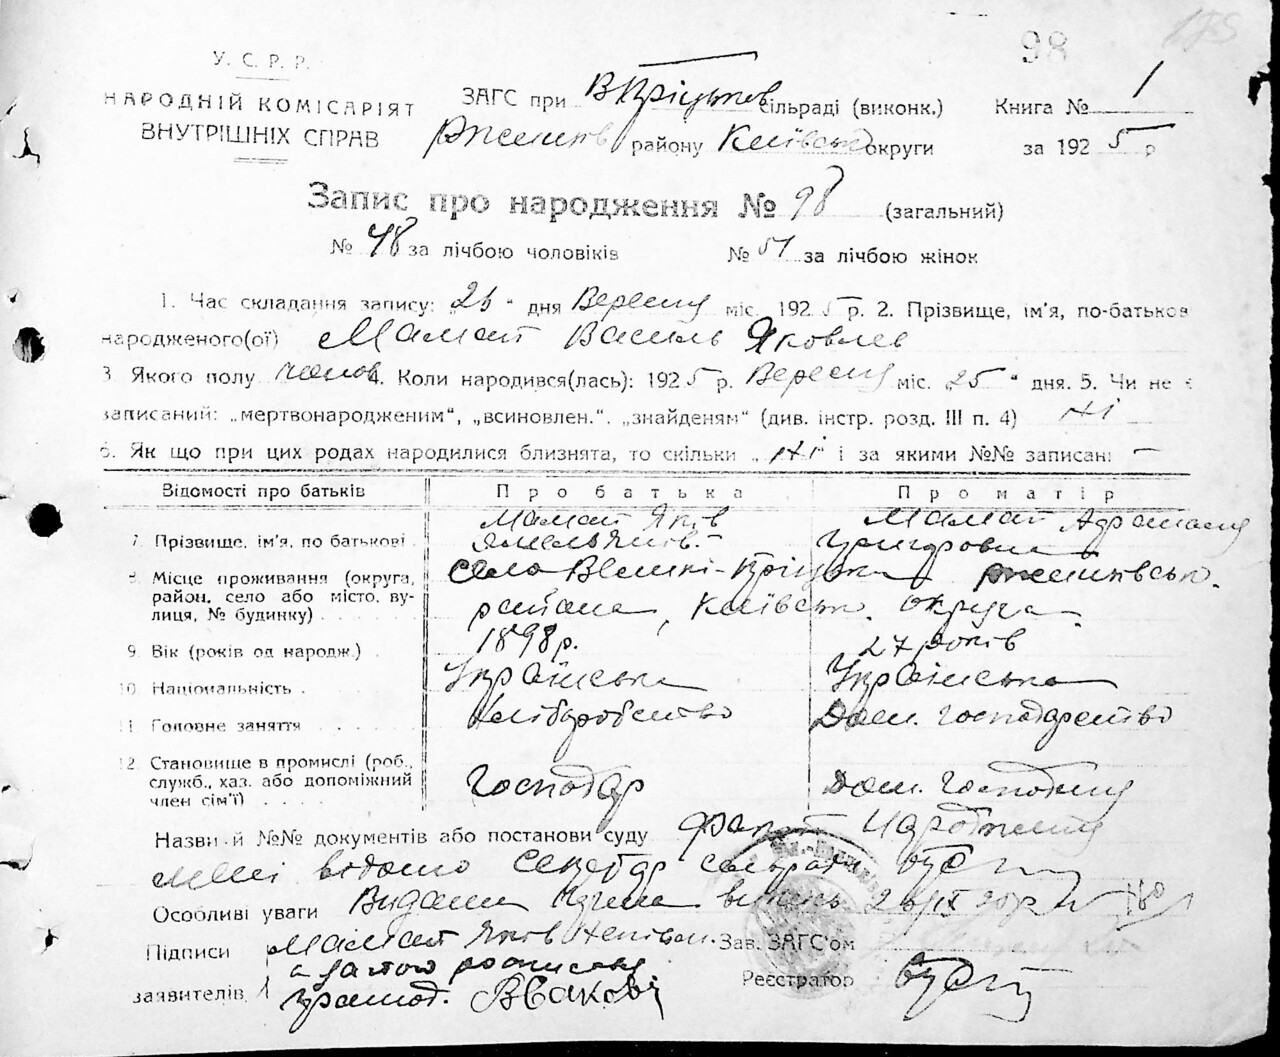 98
У. С. Р. Р.
НАРОДНІЙ КОМІСАРІЯТ
ВНУТРІШНІХ СПРАВ
ЗАГС при В Пріцьков сільраді (виконк.)
району Київськ округи
Книга № 1
за 1925 р
Запис про народження № 98 (загальний)
№ 48 за лічбою чоловіків № 51 за лічбою жінок
1. Час складання запису: „ " дня Вересня міс. 1925 р. 2. Прізвище, ім'я, по-батькові
народженого(ої) Мамай Василь Яковлев
3. Якого полу чолов 4. Коли народився(лась): 1925 р. Вересня міс. „25" дня. 5. Чи не є
записаний: „мертвонародженим", „всиновлен.", „знайденям" (див. інстр. розд. III п. 4) Ні
6. Як що при цих родах народилися близнята, то скільки „Ні" і за якими №№ записані —
Відомості про батьків Про батька Про матір
7. Прізвище, ім'я, по батькові. Мамай Яків Мамай
Григоровна
8. Місце проживання (округа, Село Великі-
район, село або місто, ву-
лиця, № будинку) района, Київськ. округа.
9. Вік (років од народж.) 1898 р. 27 років
10. Національність Українська Українська
11. Головне заняття Хліборобство Дом. господарство
12. Становище в промислі (роб.,
служб., хаз. або допоміжний Господар Дом. Господиня
член сім'ї)
Назви й №№ документів або постанови суду Факт Народження
мені відомо Секретар сільради
Особливі уваги Видана
Підписи Мамай Яків Зав. ЗАГС'ом
а за його росписався
заявителів Реєстратор
грамот.